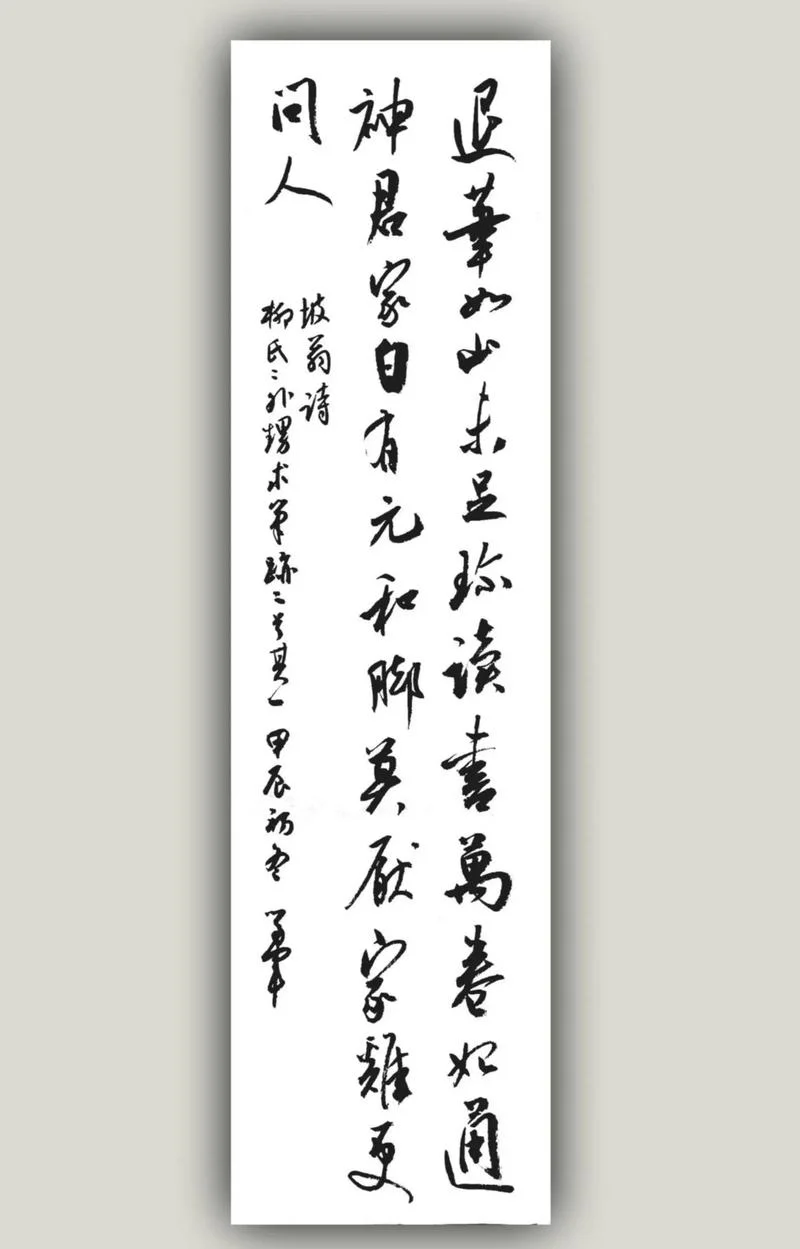 退筆如山未足珍讀書萬卷始通
神君家自有元和脚莫厭家雞更
問人
坡翁詩
柳氏二外甥求筆跡二首其一 甲辰初冬